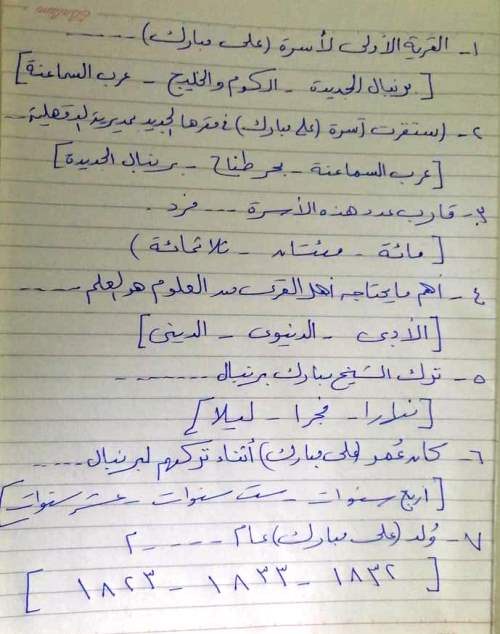 ١- القرية الأولى لأسرة (على مبارك) -----
[برنبال الجديدة - الكوم والخليج - عرب السماعنة]
٢- استقرت أسرة (على مبارك) فى مقرها الجديد بمديرية الدقهلية --
[عرب السماعنة - بحر طناح - برنبال الجديدة]
٣- قارب عدد هذه الأسرة ---- فرد.
(مائة - مئتان - ثلاثمائة)
٤- أهم ما يحتاجه أهل القرى من العلوم هو العلم -----
[الأدبى - الدنيوى - الدينى]
٥- ترك الشيخ مبارك برنبال -------
[نهارا - فجرا - ليلا]
٦- كان عُمر (على مبارك) أثناء تركهم لبرنبال -----
[اربع سنوات - ست سنوات - عشر سنوات]
٧- وُلد (على مبارك) عام ----- م
[١٨٣٢ - ١٨٣٣ - ١٨٢٣]